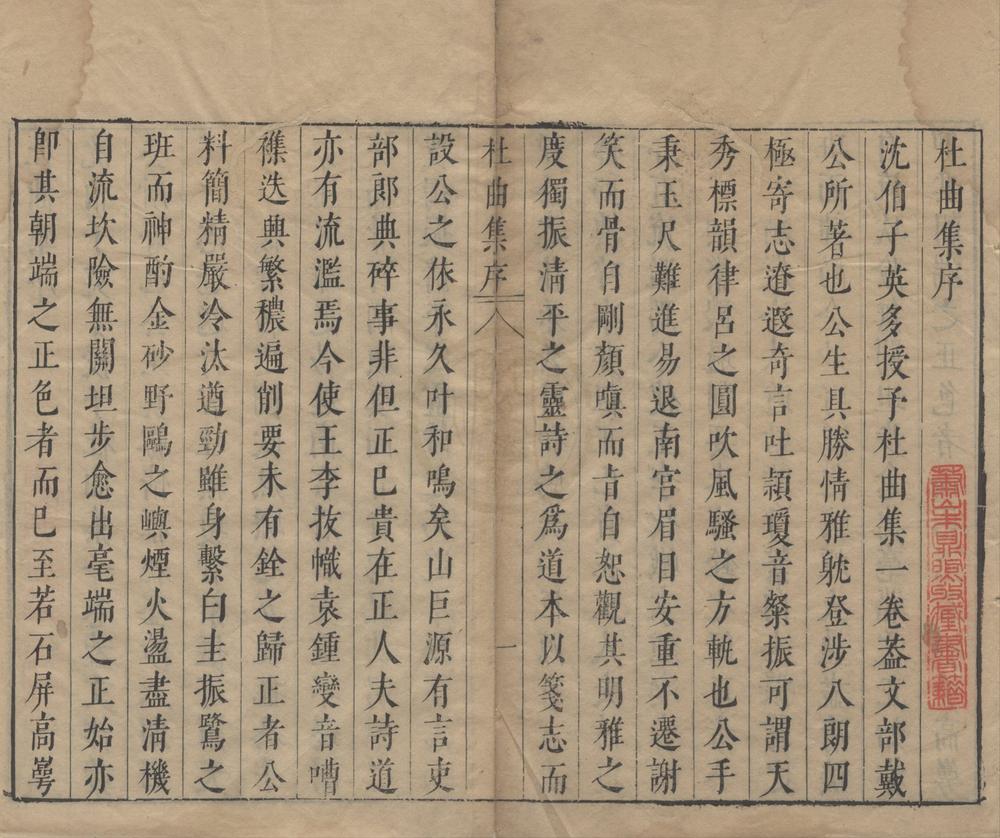 杜曲集序
沈伯子英多授予杜曲集一卷葢文部戴
公所著也公生具勝情雅躭登涉八朗四
極寄志遼遐奇言吐頴瓊音粲振可謂天
秀標韻律呂之圓吹風騷之方軌也公手
秉玉尺難進易退南宫眉目安重不遷謝
笑而骨自剛顏嗔而㫖自恕觀其明雅之
度獨振淸平之靈詩之爲道本以箋志而
杜曲集序 一
設公之依永久叶和鳴矣山巨源有言吏
部郎典碎事非但正巳貴在正人夫詩道
亦有流濫焉今使王李抜幟袁鍾變音嘈
襍迭興繁穠遍削要未有銓之歸正者公
料簡精嚴冷汰遒勁雖身繫白圭振鷺之
班而神酌金砂野鷗之嶼煙火盪盡淸機
自流坎險無關坦步愈出毫端之正始亦
卽其朝端之正色者而巳至若石屏高蕚